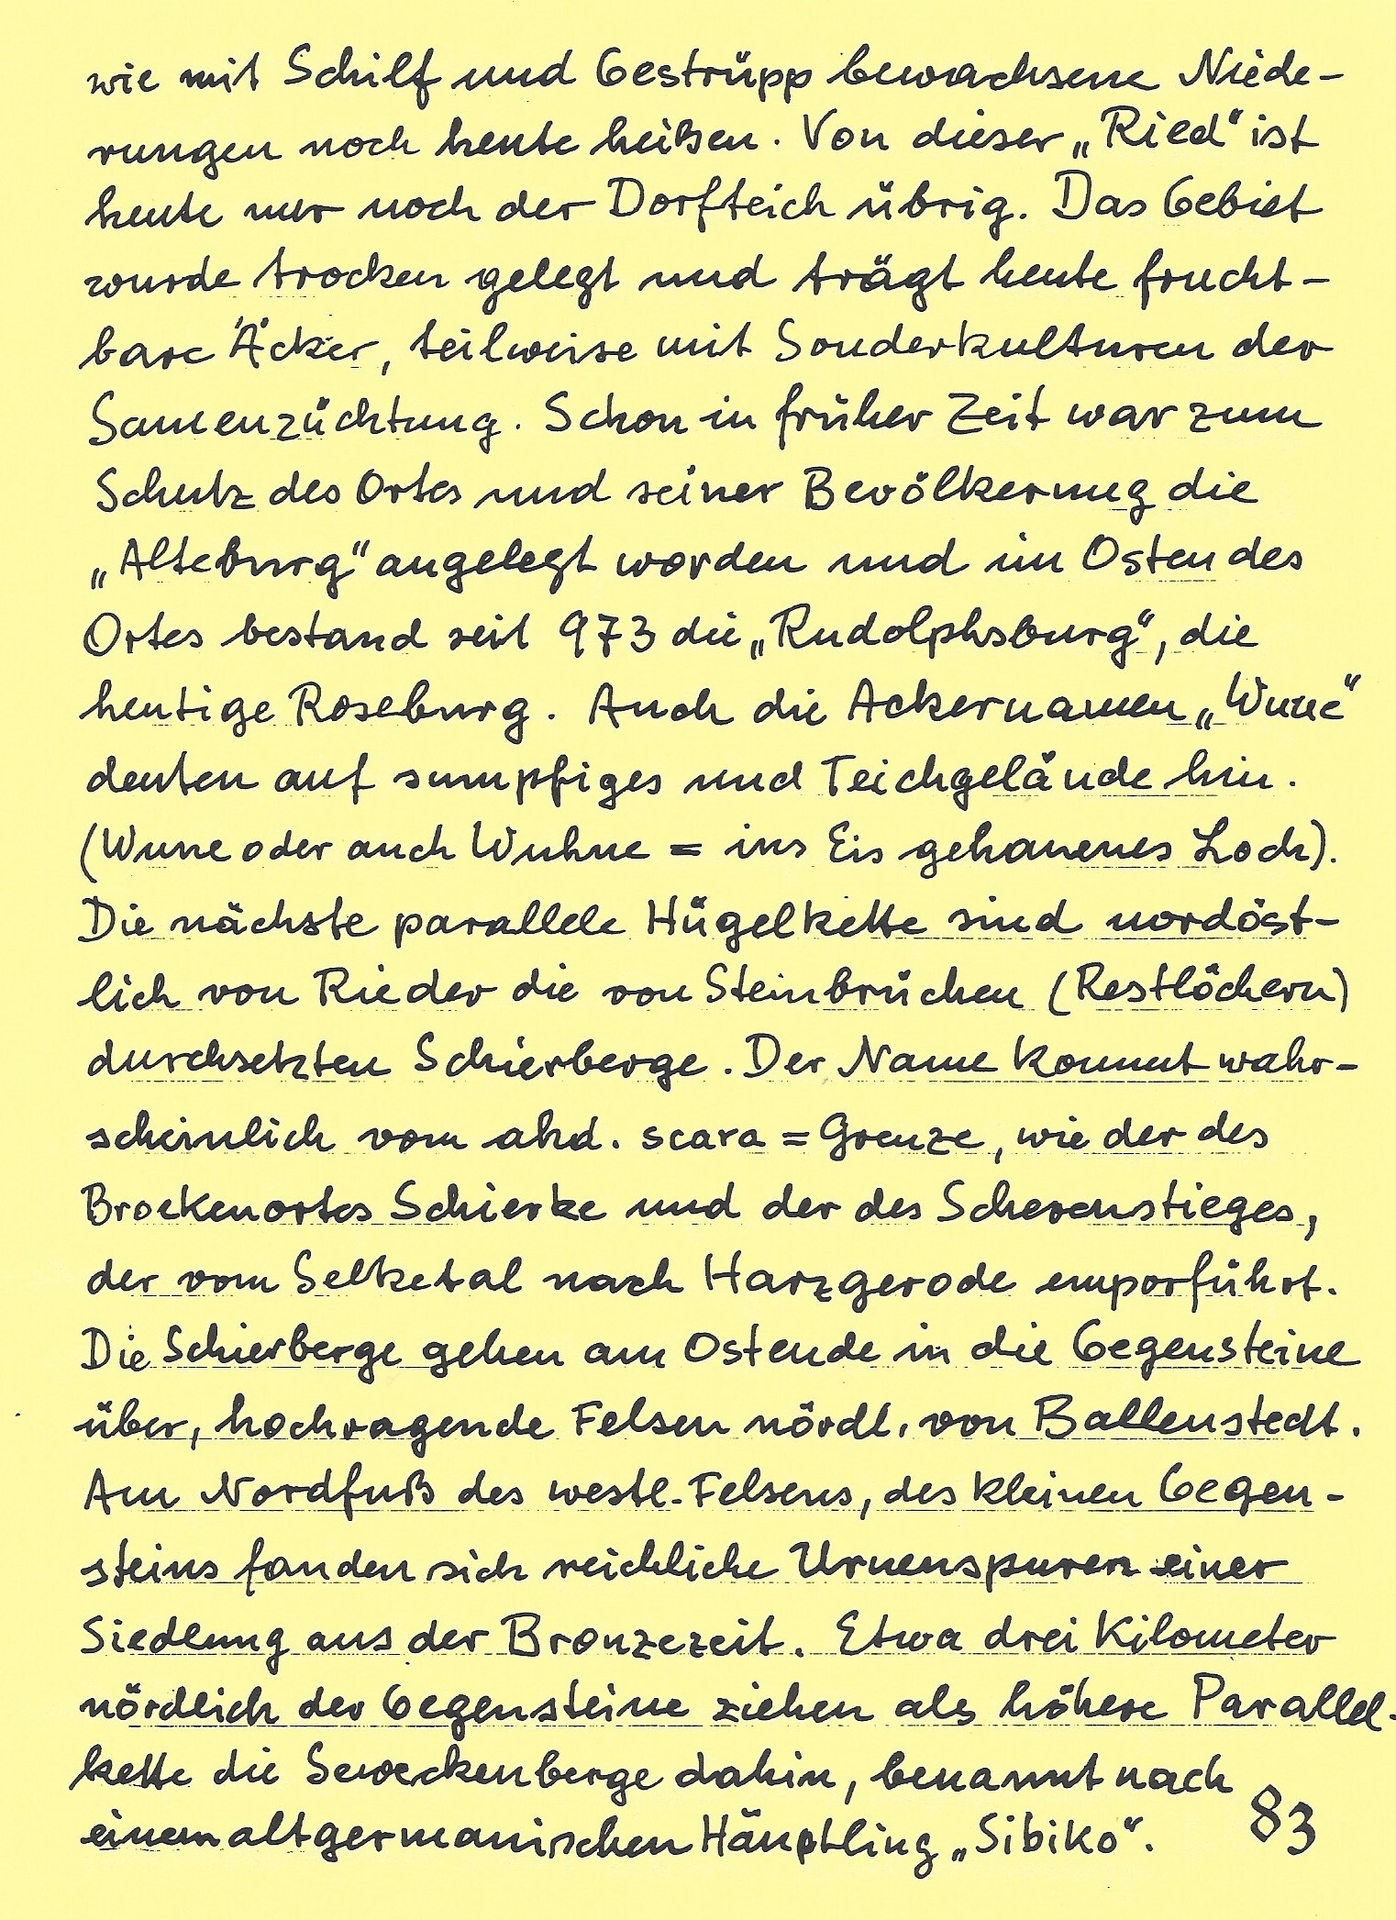 wie mit Schilf und Gestrüpp bewachsene Niede-
rungen noch heute heißen. Von dieser „Ried“ ist
heute nur noch der Dorfteich übrig. Das Gebiet
wurde trocken gelegt und trägt heute frucht-
bare Äcker, teilweise mit Sonderkulturen der
Samenzüchtung. Schon in früher Zeit war zum
Schutz des Ortes und seiner Bevölkerung die
„Alteburg“ angelegt worden und im Osten des
Ortes bestand seit 973 die „Rudolphsburg“, die
heutige Roseburg. Auch die Ackernamen „Wune“
deuten auf sumpfiges und Teichgelände hin.
(Wune oder auch Wuhne = ins Eis gehauenes Loch).
Die nächste parallele Hügelkette sind nordöst-
lich von Rieder die von Steinbrüchen (Restlöchern)
durchsetzten Schierberge. Der Name kommt wahr-
scheinlich vom ahd. scara = Grenze, wie der des
Brockenortes Schierke und der des Scherenstieges,
der vom Selketal nach Harzgerode emporführt.
Die Schierberge gehen am Ostende in die Gegensteine
über, hochragende Felsen nördl. von Ballenstedt.
Am Nordfuß des westl. Felsens, des kleinen Gegen-
steins fanden sich reichliche Urnenspuren einer
Siedlung aus der Bronzezeit. Etwa drei Kilometer
nördlich der Gegensteine ziehen als höhere Parallel-
kette die Seweckenberge dahin, benannt nach
einem altgermanischen Häuptling „Sibiko“. 83